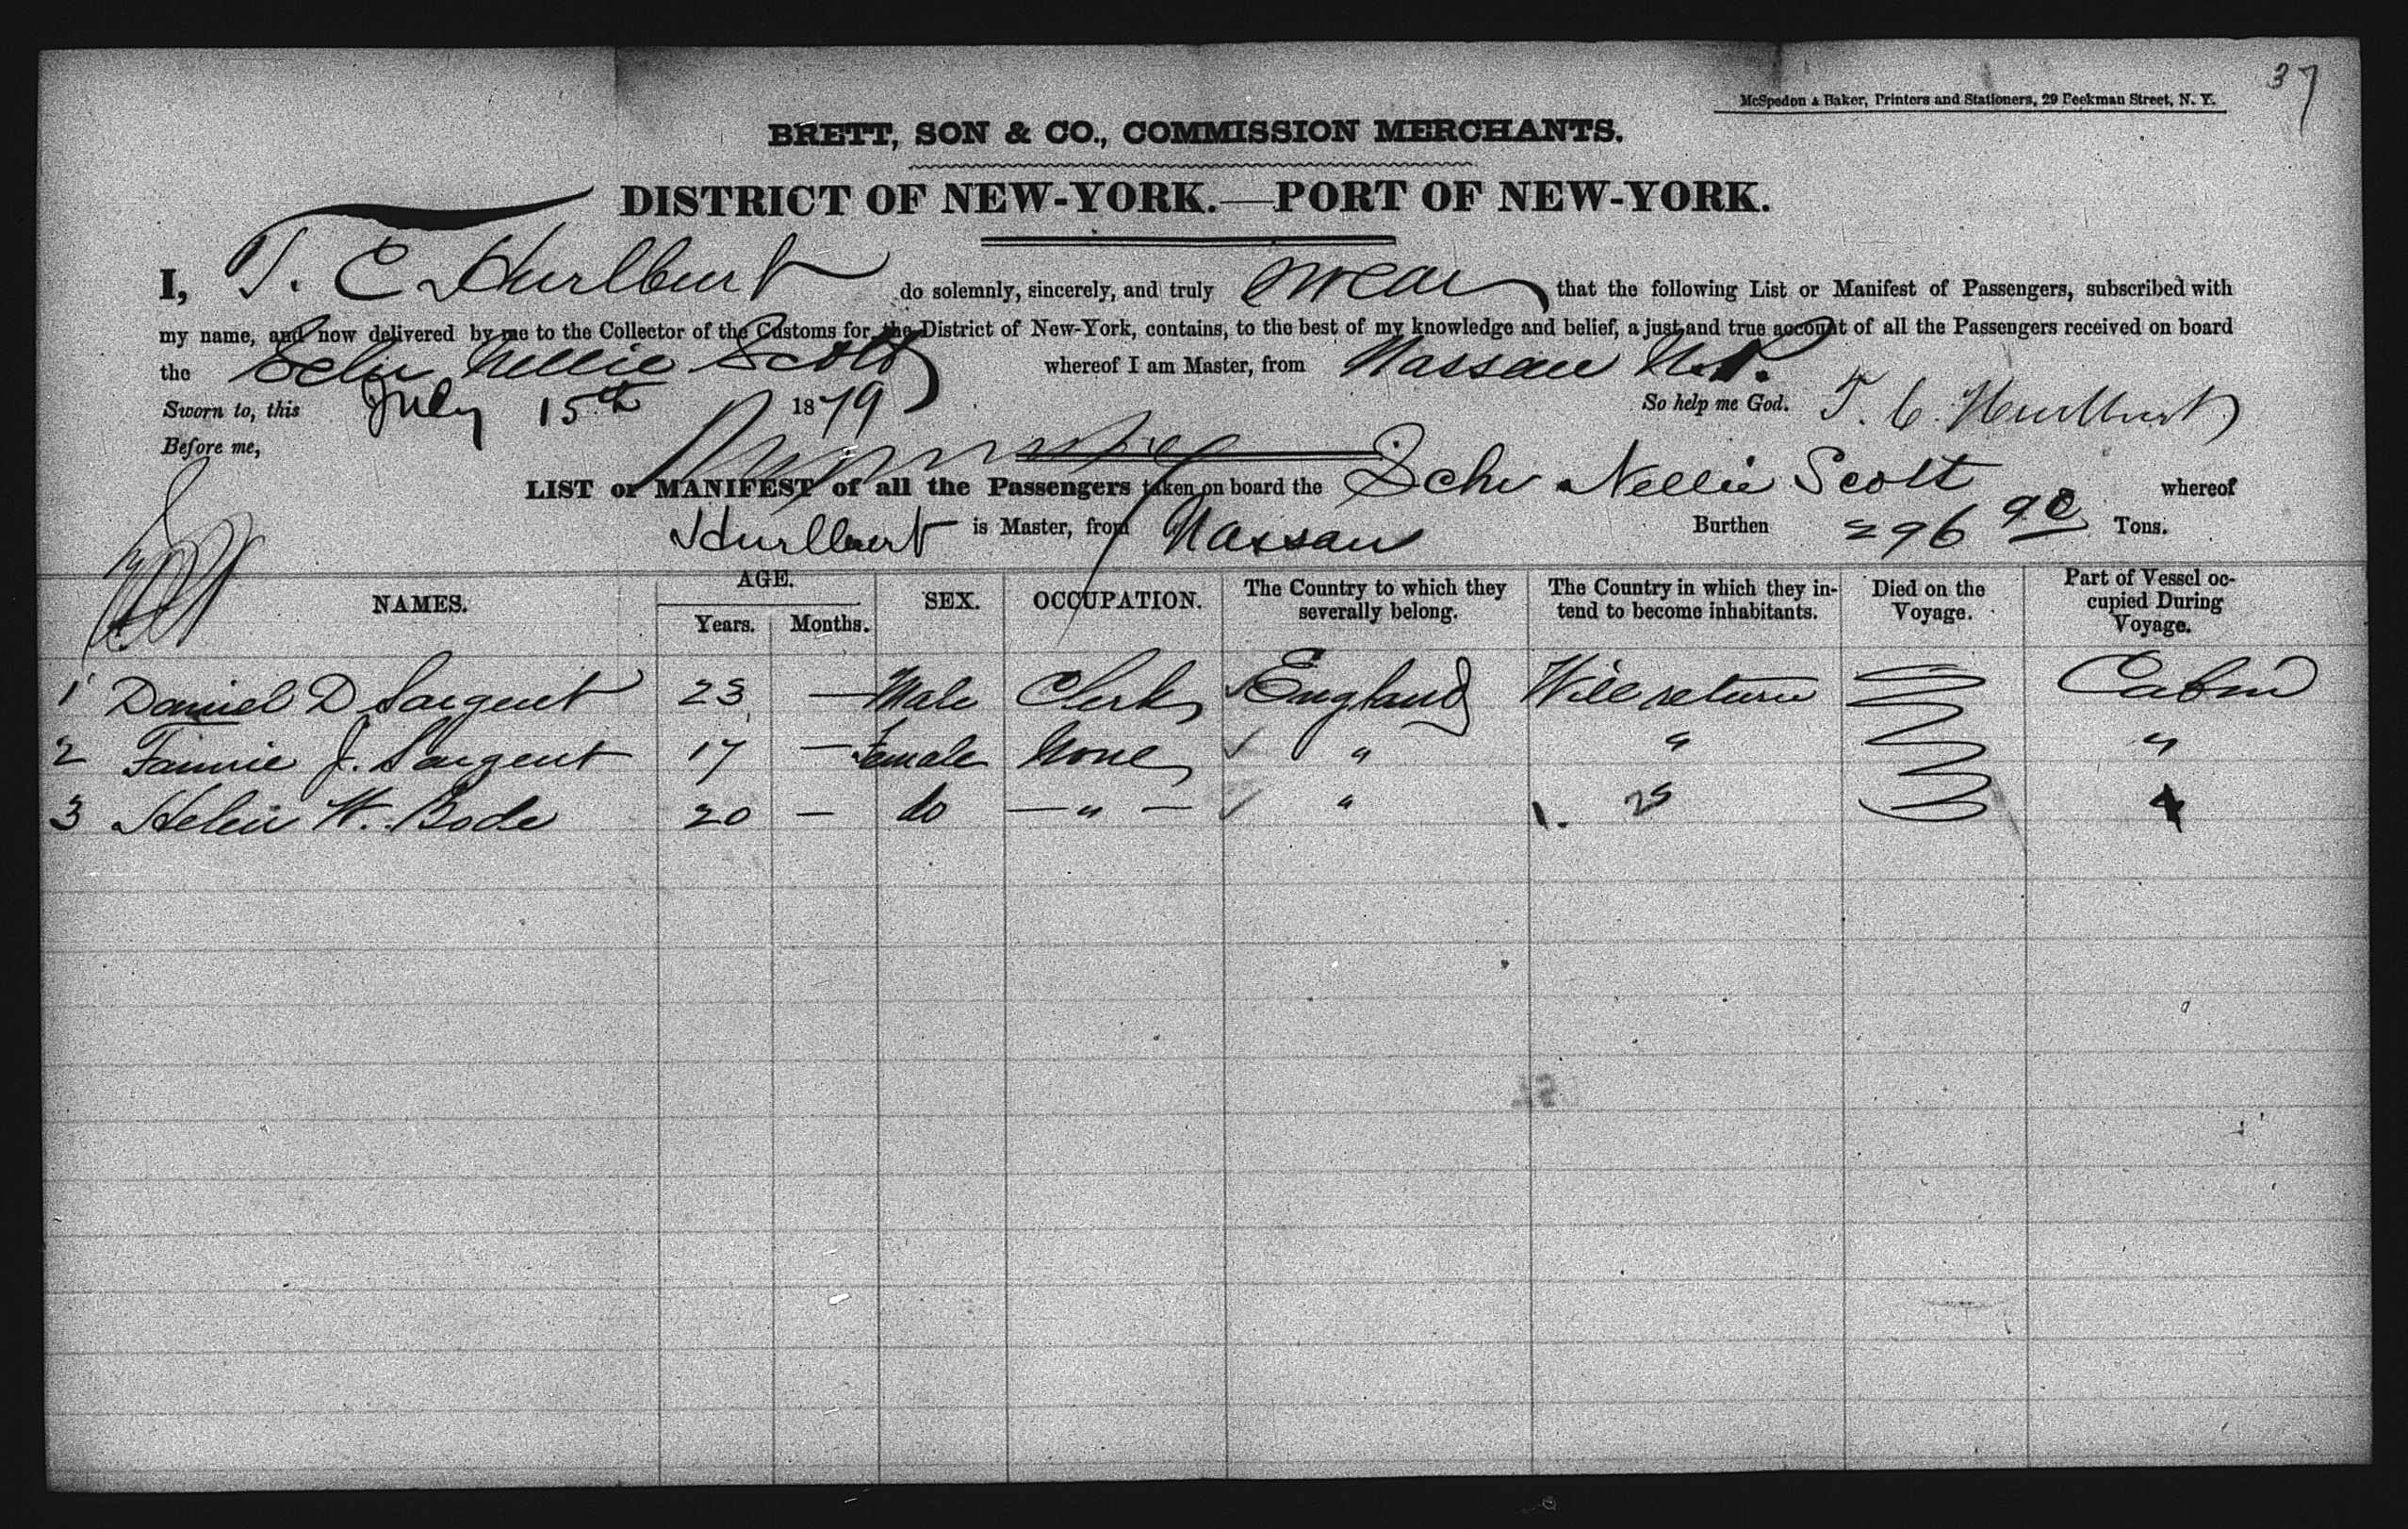 37
McSpedon & Baker, Printers and Stationers, 29 Beekman Street, N. Y.
BRETT, SON & CO., COMMISSION MERCHANTS.
DISTRICT OF NEW-YORK.—PORT OF NEW-YORK.
I, T. C Hurlburt do solemnly, sincerely, and truly swear that the following List or Manifest of Passengers, subscribed with
my name, and now delivered by me to the Collector of the Customs for the District of New-York, contains, to the best of my knowledge and belief, a just and true account of all the Passengers received on board
the Schr Nellie Scott whereof I am Master, from Nassau N.P.
Sworn to, this July 15th 1879 So help me God. T. C. Hurlburt
Before me,
LIST or MANIFEST of all the Passengers taken on board the Schr Nellie Scott whereof
Hurlburt is Master, from Nassau Burthen 296 Tons.
NAMES. AGE. Years. Months. SEX. OCCUPATION. The Country to which they severally belong. The Country in which they intend to become inhabitants. Died on the Voyage. Part of Vessel occupied During Voyage.
1 Daniel D Sargent 23 — Male Clerk England Will return Cabin
2 Fannie J. Sargent 17 — Female None " " "
3 Helen W. Bode 20 — do — " — " "